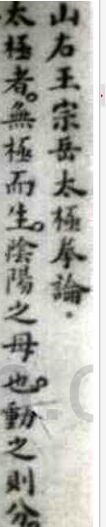 山右王宗岳太極拳論．
太極者。無極而生。陰陽之母也。動之則分